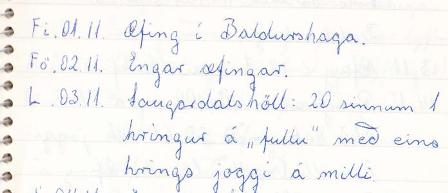 Fi.01.11. Æfing í Baldurshaga.
Fö.02.11. Engar æfingar.
L.03.11. Laugardalshöll: 20 sinnum 1
hringur á „fullu" með eins
hrings joggi á milli.